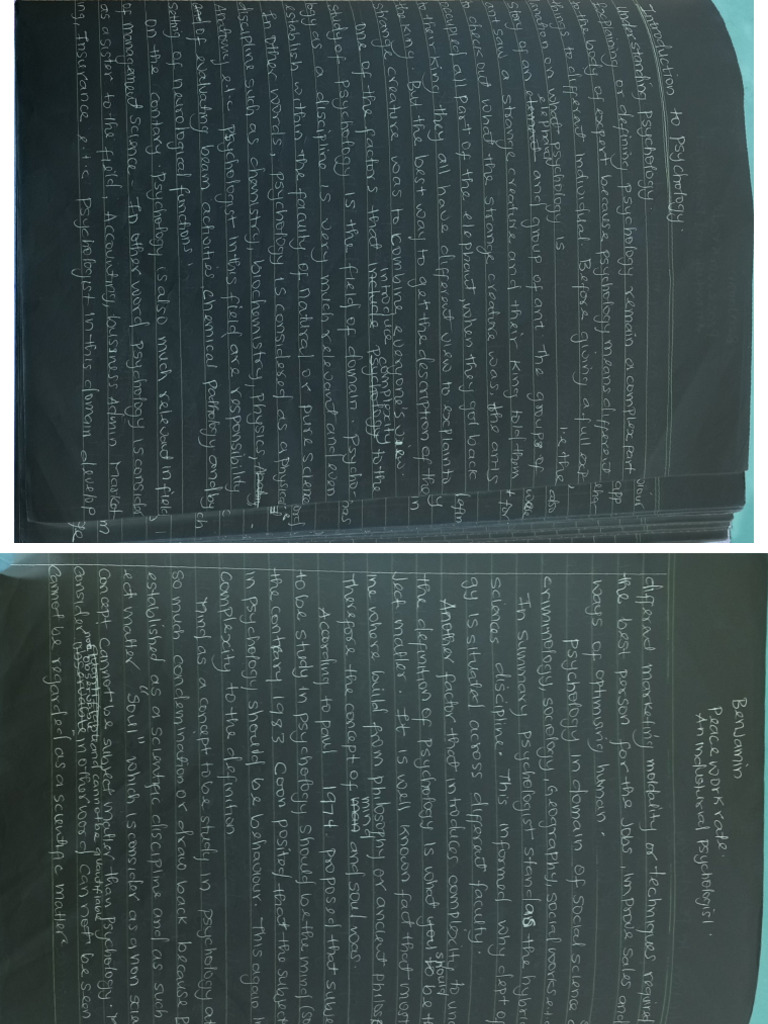 Introduction to Psychology
Understanding Psychology.
Explaining or defining psychology remain a complex part
to the body of expert because psychology means different
things to different Individual. Before giving a full exp
lanation on what psychology is
elephant
story of an and group of ant. The group of
ant saw a strange creature and their king told them
to check out what the strange creature was. the ants
occupied all part of the elephant, when they get back
to their king they all have different view to explain to
the king. But the best way to get the description of the
strange creature was to combine everyone's view.
introduce complexity
One of the factors that include psychology to the
study of psychology is the field of domain. Psycho-
logy as a discipline is very much relevant and even
establish within the faculty of natural or pure science
In other words, psychology is considered as a physical
discipline such as chemistry, biochemistry, physics,
Anatomy e.t.c psychologist in this field are responsibility
of evaluating brain activities, chemical pathology and
setting of neurological functions.
On the contary, psychology is also much related in field
of management science. In other word psychology is consider
as a sister to the field, Accounting, business Admin Market
ing, Insurance e.t.c psychologist in this domain develop
Benjamin
Peace work rate.
An Industrial Psychologist.
different marketing modality or techniques, required
the best person for the Jobs, improve sales and
ways of optimising human.
psychology in domain of social science
criminology, sociology, Geography, social work e.t.c
In summary psychologist stand as the hybrid
sciences discipline. This informed why dept of
gy is situated across different faculty.
Another factor that introduces complexity to und
should
the definition of psychology is what you to be the
Ject matter. It is well known fact that most
me where build from philosophy or ancient philoso
mind
Therefore the concept of and soul was.
According to paul 1974 proposed that subje
to be study in psychology should be the mind (so
the contrary 1983 Coon posited that the subject
in psychology should be behaviour. This again in
complexity to the definition
Mind as a concept to be study in psychology at
so much condemnation or draw back because p
established as a scientific discipline and as such
ect matter "Soul" which is consider as a non scie
concept cannot be subject matter than psychology.
and cannot be quantified
consider in other word can not be seen
cannot be regarded as a scientific matter